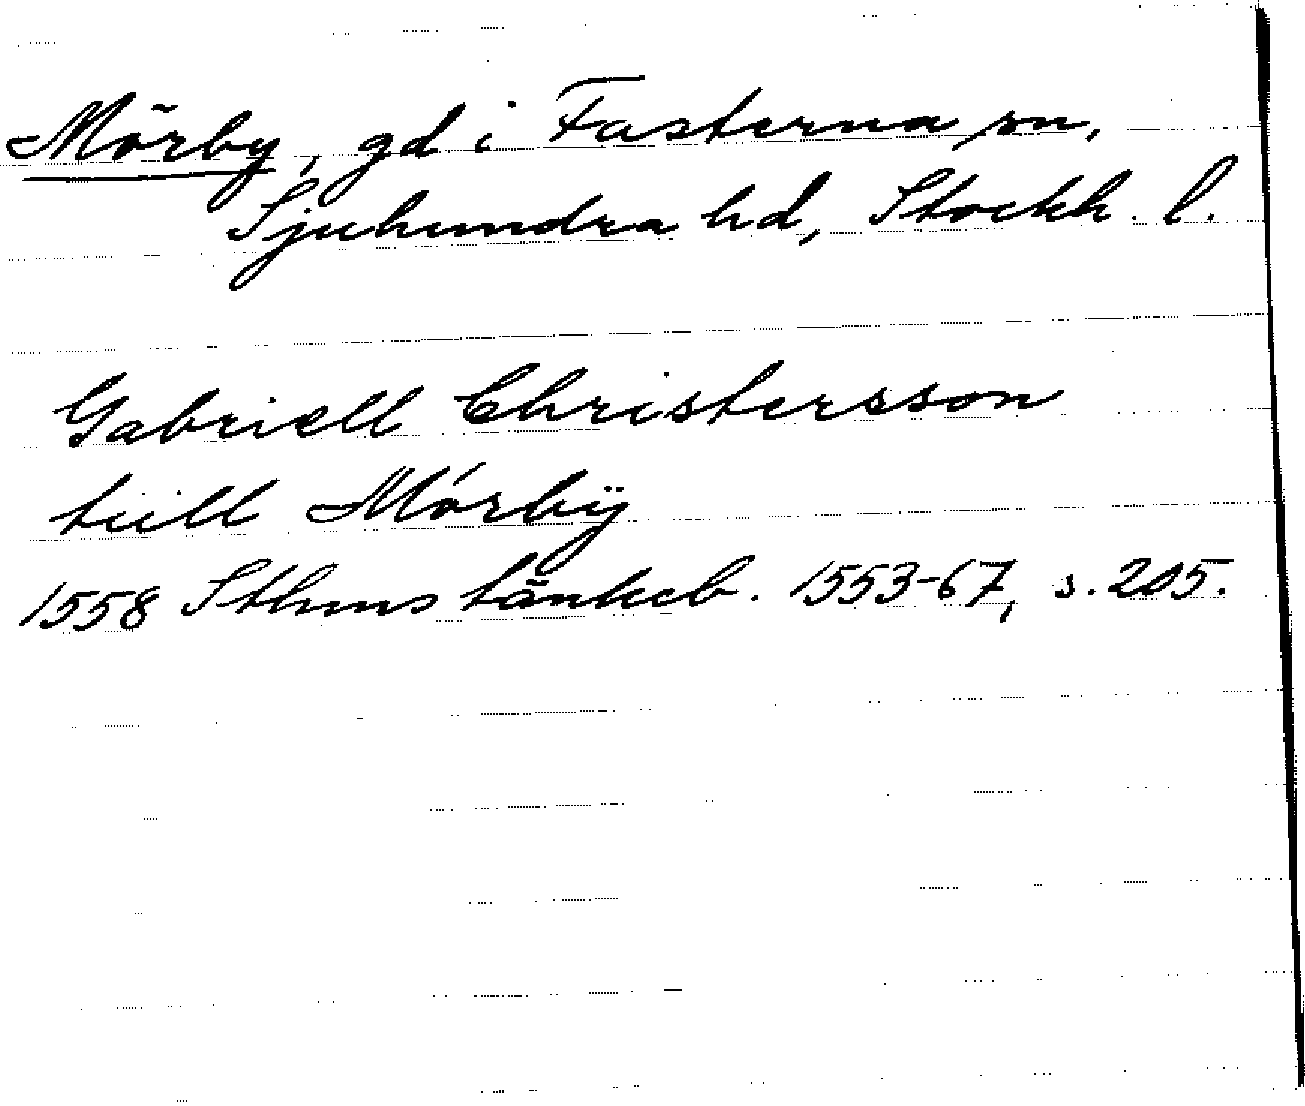 Mörby, gd i Fasterna sn,
Sjuhundra hd, Stockh. l.
Gabriell Christersson
tiill Mórbÿ
1558 Sthms tänkeb. 1553-67, s. 205.